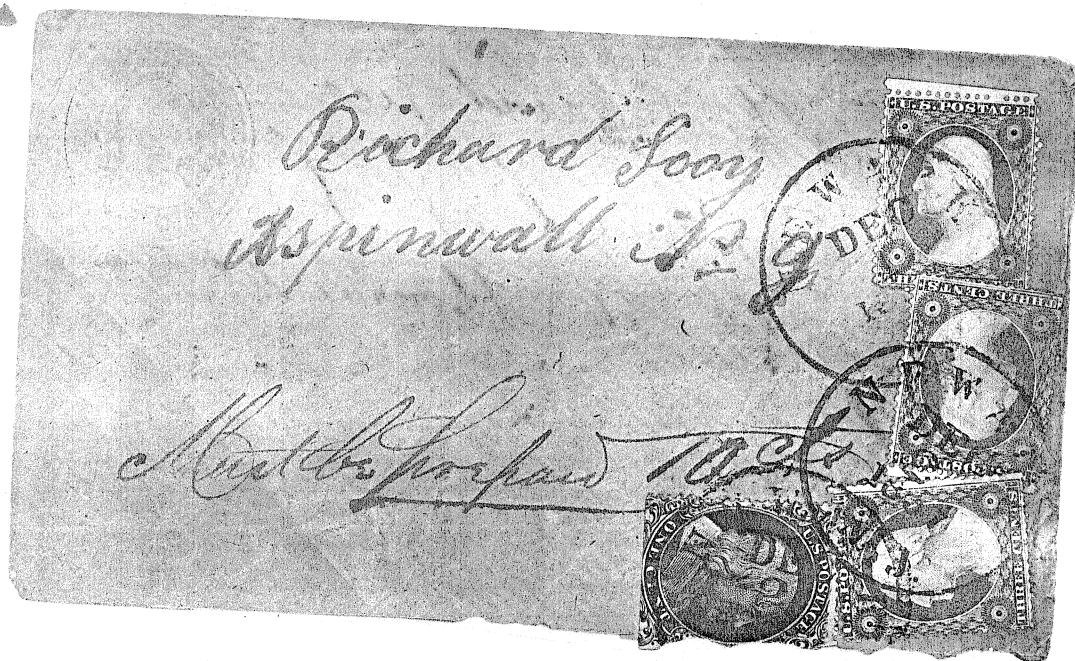 Richard Sooy
Aspinwall NP
Must be prepaid 10 cts
U.S. POSTAGE
DEC
THREE CENTS
NEW
U.S. POSTAGE
ONE CENT
U.S. POSTAGE
THREE CENTS